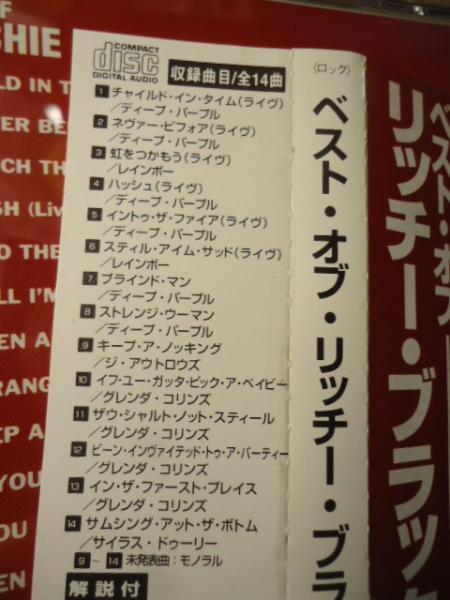 COMPACT
disc
DIGITAL AUDIO
収録曲目/全14曲
1 チャイルド・イン・タイム(ライヴ)
/ディープ・パープル
2 ネヴァー・ビフォア(ライヴ)
/ディープ・パープル
3 虹をつかもう(ライヴ)
/レインボー
4 ハッシュ(ライヴ)
/ディープ・パープル
5 イントゥ・ザ・ファイア(ライヴ)
/ディープ・パープル
6 スティル・アイム・サッド(ライヴ)
/レインボー
7 ブラインド・マン
/ディープ・パープル
8 ストレンジ・ウーマン
/ディープ・パープル
9 キープ・ア・ノッキング
/ジ・アウトロウズ
10 イフ・ユー・ガッタ・ピック・ア・ベイビー
/グレンダ・コリンズ
11 ザウ・シャルト・ノット・スティール
/グレンダ・コリンズ
12 ビーン・インヴァイテッド・トゥ・ア・パーティー
/グレンダ・コリンズ
13 イン・ザ・ファースト・プレイス
/グレンダ・コリンズ
14 サムシング・アット・ザ・ボトム
/サイラス・ドゥーリー
9〜14 未発表曲:モノラル
解説付
〈ロック〉
ベスト・オブ・リッチー・ブラ
ベスト・オブ
リッチー・ブラック
OF
CHIE
LD IN T
ER BE
TCH TH
SH (Liv
O THE
LL I'M
EN A
RANG
EP A
YOU
YOU
EN